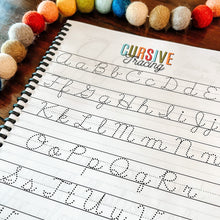 CURSIVE
Tracing
Aa Bb Cc Dd E
Ff Gg Hh Ii
Kk Ll Mm Nn
Oo Pp Qq R
Ss